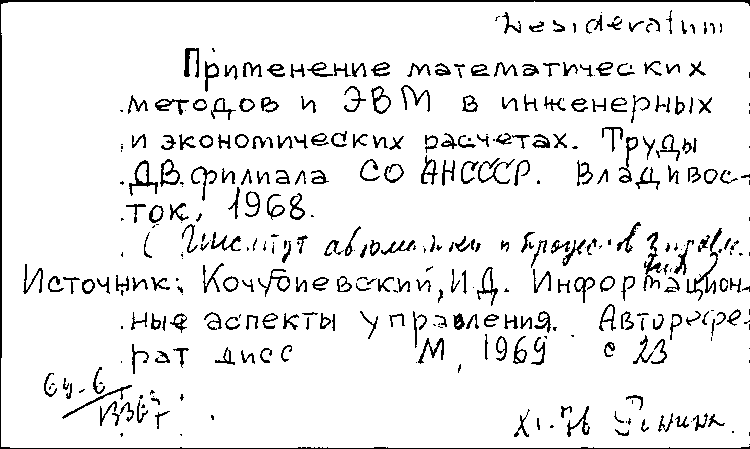 Desideratum
Применение математических
методов и ЭВМ в инженерных
и экономических расчетах. Труды
ДВ филиала СО АНСССР. Владивос-
ток, 1968.
(Институт автоматики и процессов управле
ния)
Источник: Кочубиевский, И.Д. Информацион-
ные аспекты управления. Авторефе-
рат дисс М, 1969 с 23
XI-76